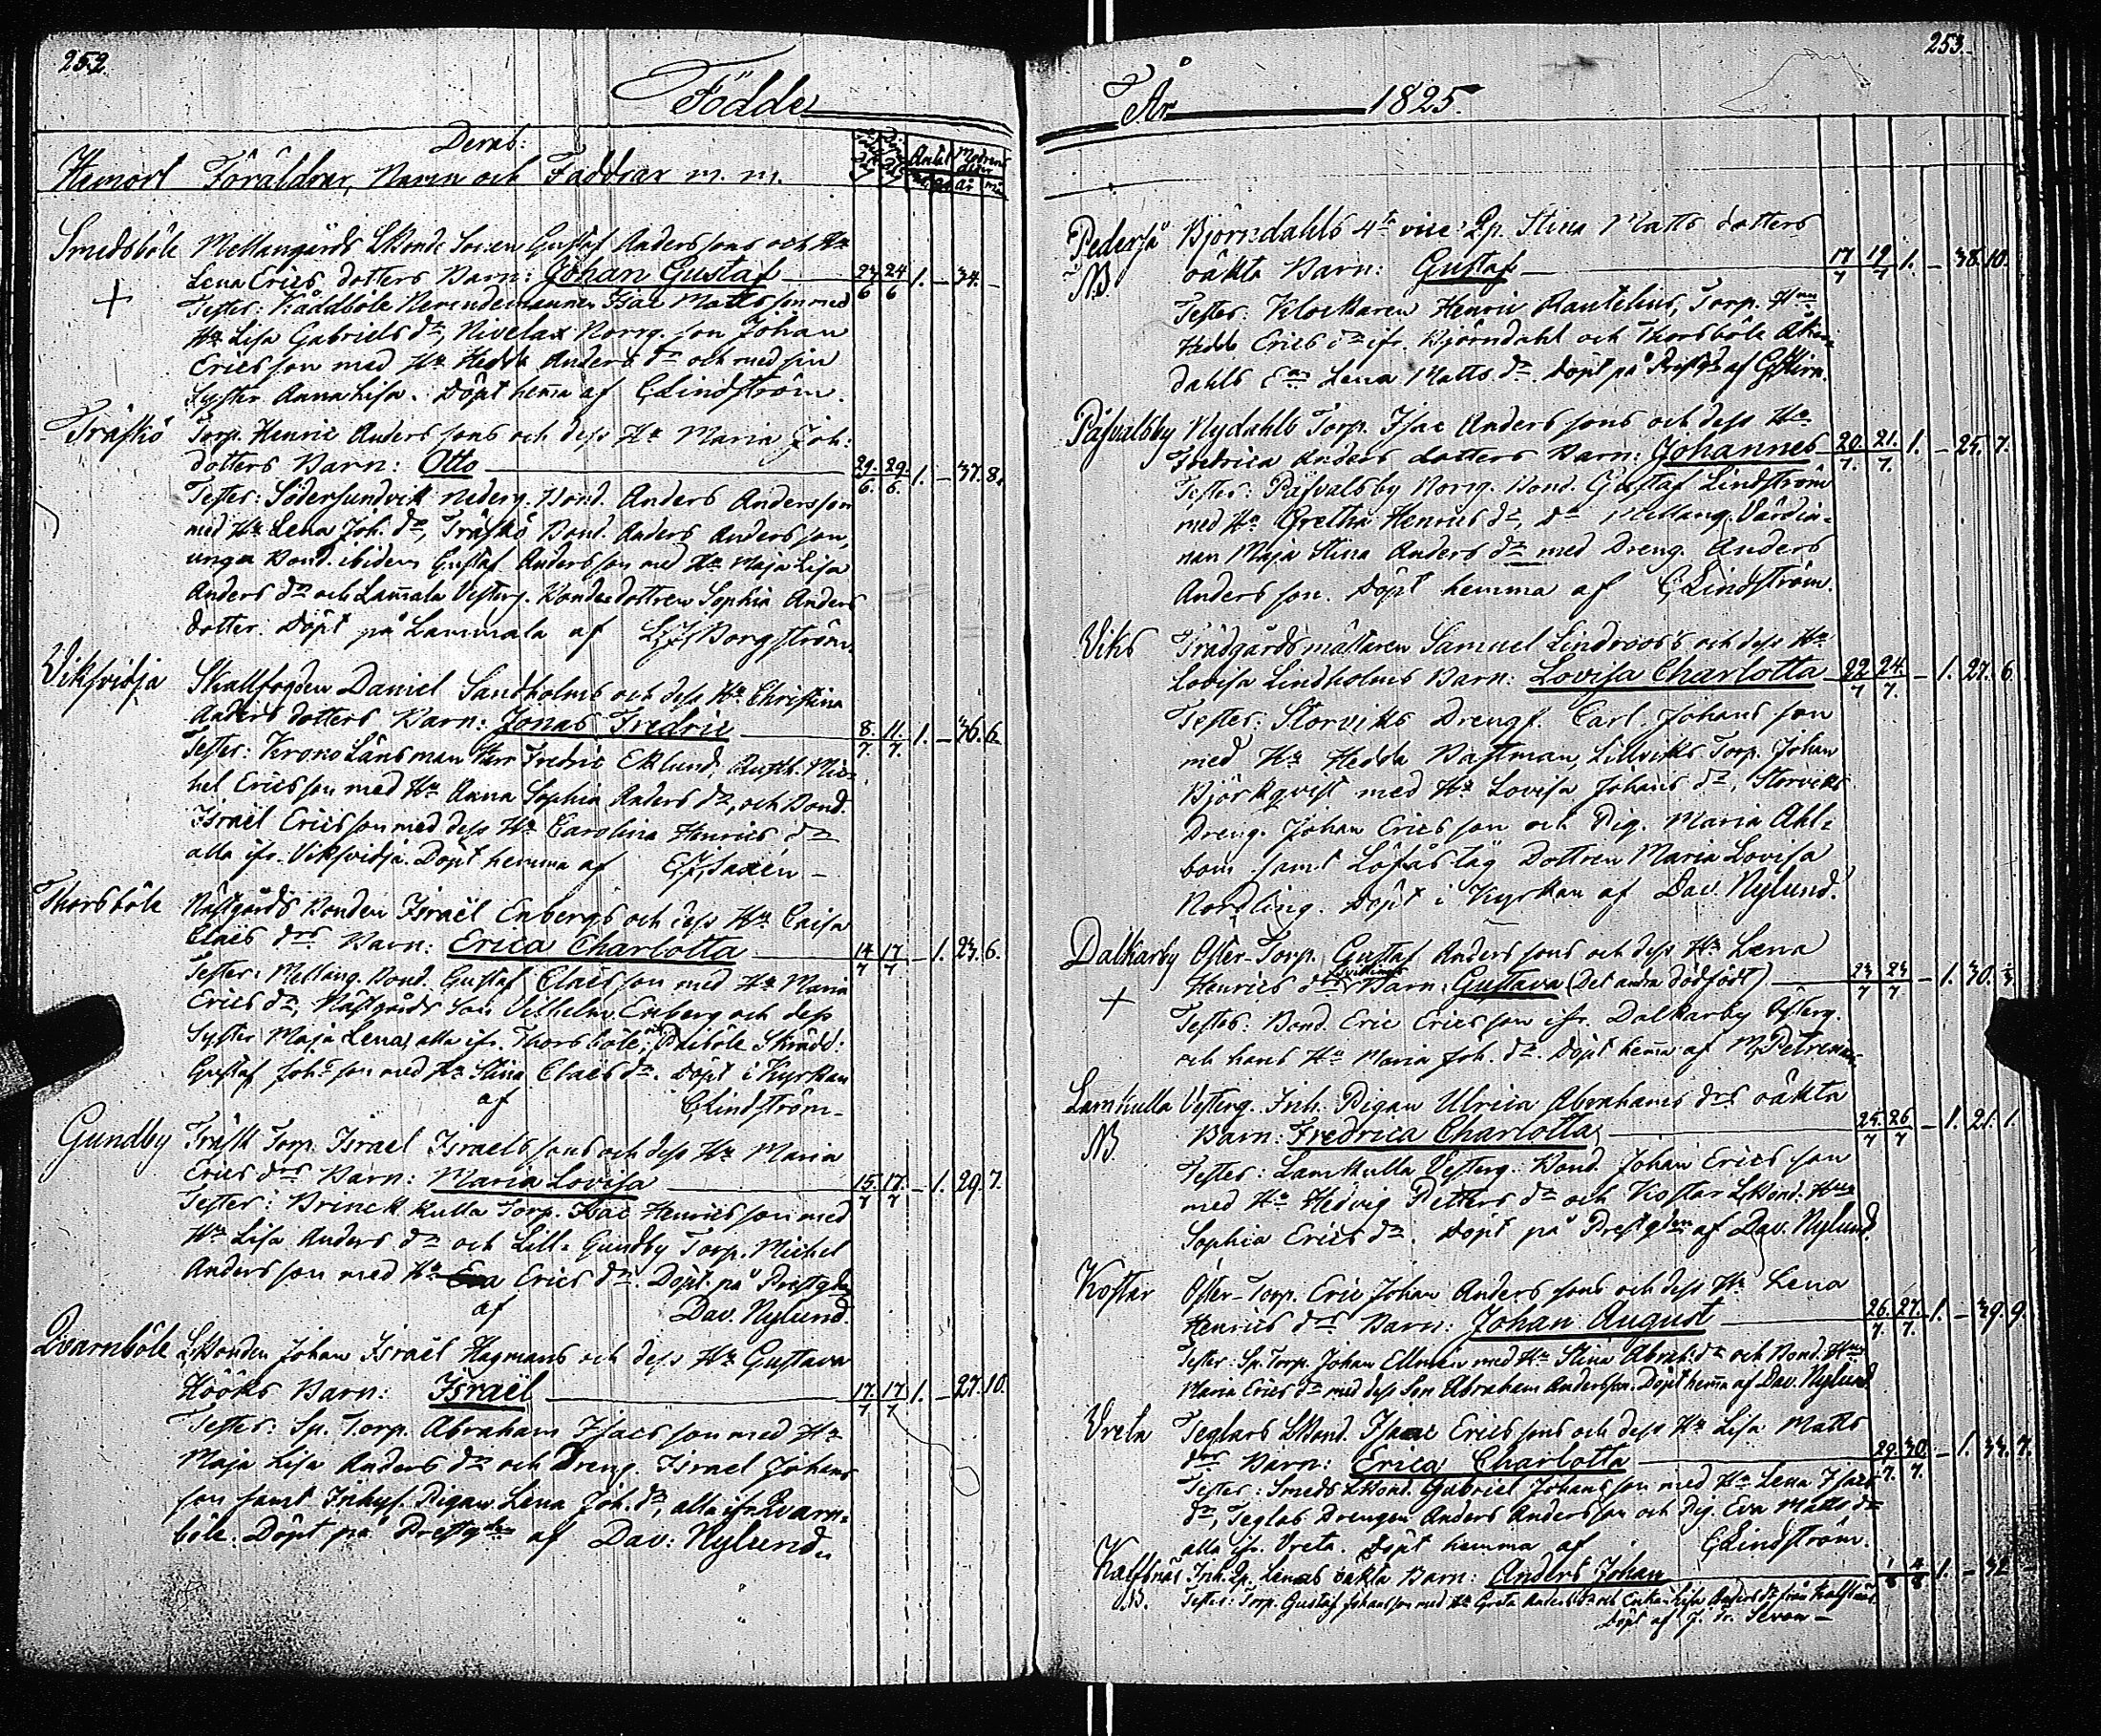 252.
Födde
Deras:
Hemort Föräldrar, Namn och Faddrar m. m.
Smedsböle Mellangårds LBonde Sonen Gustaf Anderssons och Hu
Lena Erics dotters Barn: Johan Gustaf 23/6 24/6 1. – 34. –
Testes: Nämndemannen Isac Mattsson med
Hu Lisa Gabriels dr, Nivelax Norrg. son Johan
Ericsson med Hu Hedda Anders dr och med sin
Syster Anna Lisa. Döpt hema af GLindström.
Träskö Torp. Henric Anderssons och dess Hu Maria Joh:
dotters Barn: Otto 29./6. 29./6. 1. – 37. 8.
Testes: Södersundvik nederg. Bond. Anders Andersson
med Hu Lena Joh. dr, Träskö Bond. Anders Andersson,
unga Bond. ibidem Gustaf Andersson med Hu Maja Lisa
Anders dr och Lamala Vesterg. Bondedottren Sophia Anders
dotter. Döpt på Lammala af Borgström.
Viksvidja Skallfogden Daniel Sandholms och dess Hu Christina
Anders dotters Barn: Jonas Fredric 8./7. 11./7. 1. – 36. 6
Testes: Krono Länsman Herr Fredric Eklund, Rusth. Mic=
hel Ericsson med Hu Anna Sophia Anders dr, och Bond.
Israël Ericsson med dess Hu Carolina Henrics dr
alla ifr. Viksvidja. Döpt hemma af Saxén –
Thorsböle Nästgårds Bonden Israël Enbergs och dess Hu Caisa
Claës drs Barn: Erica Charlotta 14/7 17/7 – 1. 23. 6.
Testes: Mellang. Bond. Gustaf Claësson med Hu Maria
Erics dr, Nästgårds Son Vilhelm Enberg och dess
Syster Maja Lena, alla ifr. Thorsböle, Skrädd:
Gustaf Johsson med Hu Stina Claës dr. Döpt i Kyrkan
af GLindström –
Gundby Träsk Torp. Israel Israelssons och dess Hu Maria
Erics drs Barn: Maria Lovisa 15./7 17./7 – 1. 29. 7.
Testes: Brinckkulla Torp. Isac Henricsson med
Hu Lisa Anders dr och Lill=Gundby Torp. Michel
Andersson med Hu Eva Erics dr. Döpt på Prestgdn
af Dav. Nylund.
Qvarnböle LBonden Johan Israël Hagmans och dess Hu Gustava
Hööks Barn: Israël 17./7 17/7 1. – 27. 10.
Testes: Sp. Torp. Abraham Isacsson med Hu
Maja Lisa Anders dr och Dreng. Israel Johans
son samt Inhys. Pigan Lena Joh. dr, alla ifr. Qvarn=
böle. Döpt på Prestgdn af Dav: Nylund.
253.
År 1825.
Pedersjä Björndahls 4de vice Qp. Stina Matts dotters
NB. oäkta Barn: Gustaf 17/7 19/7 1. – 38. 10.
Testes: Klockaren Henric Rautelius, Torp. Hun
Hedda Erics dr ifr. Björndahl och Thorsböle
dahls Lena Matts dr. Döpt på Prestgd af
Påfvalsby Nydahls Torp. Isac Anderssons och dess Hu
Fredrica Anders dotters Barn: Johannes 20./7. 21./7. 1. – 25. 7.
Testes: Påfvalsby Norrg. Bond. Gustaf Lindström
med Hu Gretha Henrics dr, Do Mellang. Värdin=
nan Maja Stina Anders dr med Dreng. Anders
Andersson. Döpt hemma af GLindström.
Viks Trädgårdsmästaren Samuel Lindroos's och dess Hu
Lovisa Lindholms Barn: Lovisa Charlotta 22/7 24./7. – 1. 27. 6
Testes: Storviks Drengs. Carl Johansson
med Hu Hedda Bastman, Lillviks Torp. Johan
Björkqvist med Hu Lovisa Johans dr, Storviks
Dreng. Johan Ericsson och Pig. Maria Ahl=
bom samt Löfåstäg Dottren Maria Lovisa
Nordling. Döpt i Kyrkan af Dav. Nylund.
Dalkarby Öster-Torp. Gustaf Anderssons och dess Hu Lena
Henrics drs Barn: Gustava (Det andra dödfödt) 23/7 23/7 – 1. 30.
Testes: Bond. Eric Ericsson ifr. Dalkarby Österg.
och hans Hu Maria Joh. dr. Döpt hema af
Lamkulla Vesterg. Inh. Pigan Ulrica Abrahams drs oäkta
NB. Barn: Fredrica Charlotta 25./7 26/7 – 1. 21. 1.
Testes: Lamkulla Vesterg. Bond. Johan Ericsson
med Hu Hedvig Petters dr och Kostar LBond: Hun
Sophia Erics dr. Döpt på Prestgden af Dav. Nylund.
Kostar Öster-Torp. Eric Johan Anderssons och dess Hu Lena
Henrics drs Barn: Johan August 26./7. 27./7. 1. – 39. 9.
Testes: Sp. Torp. Johan Ellmén med Hu Stina Abrah: dr och Bond: Hun
Maria Erics dr med dess Son Abraham Andersson. Döpt hema af Dav. Nylund
Vreta Teglars LBond. Isaac Ericssons och dess Hu Lisa Matts
drs Barn: Erica Charlotta 29./7. 30./7. – 1. 34. 7.
Testes: Smeds LBond. Gabriel Johansson med Hu Lena Isacs
dr, Teglas Drengen Anders Andersson och Pig. Eva Matts dr
alla ifr. Vreta. Döpt hemma af GLindström.
Kalfsnäs Inh. Qp. Lenas oäkta Barn: Anders Johan 1/8 4/8 1. – 32
NB. Testes: Torp. Gustaf Johansson med Hu Greta Anders dr och Enkan Lisa Anders dr från Kalfsnäs
Döpt af J. Fr. Sevon –